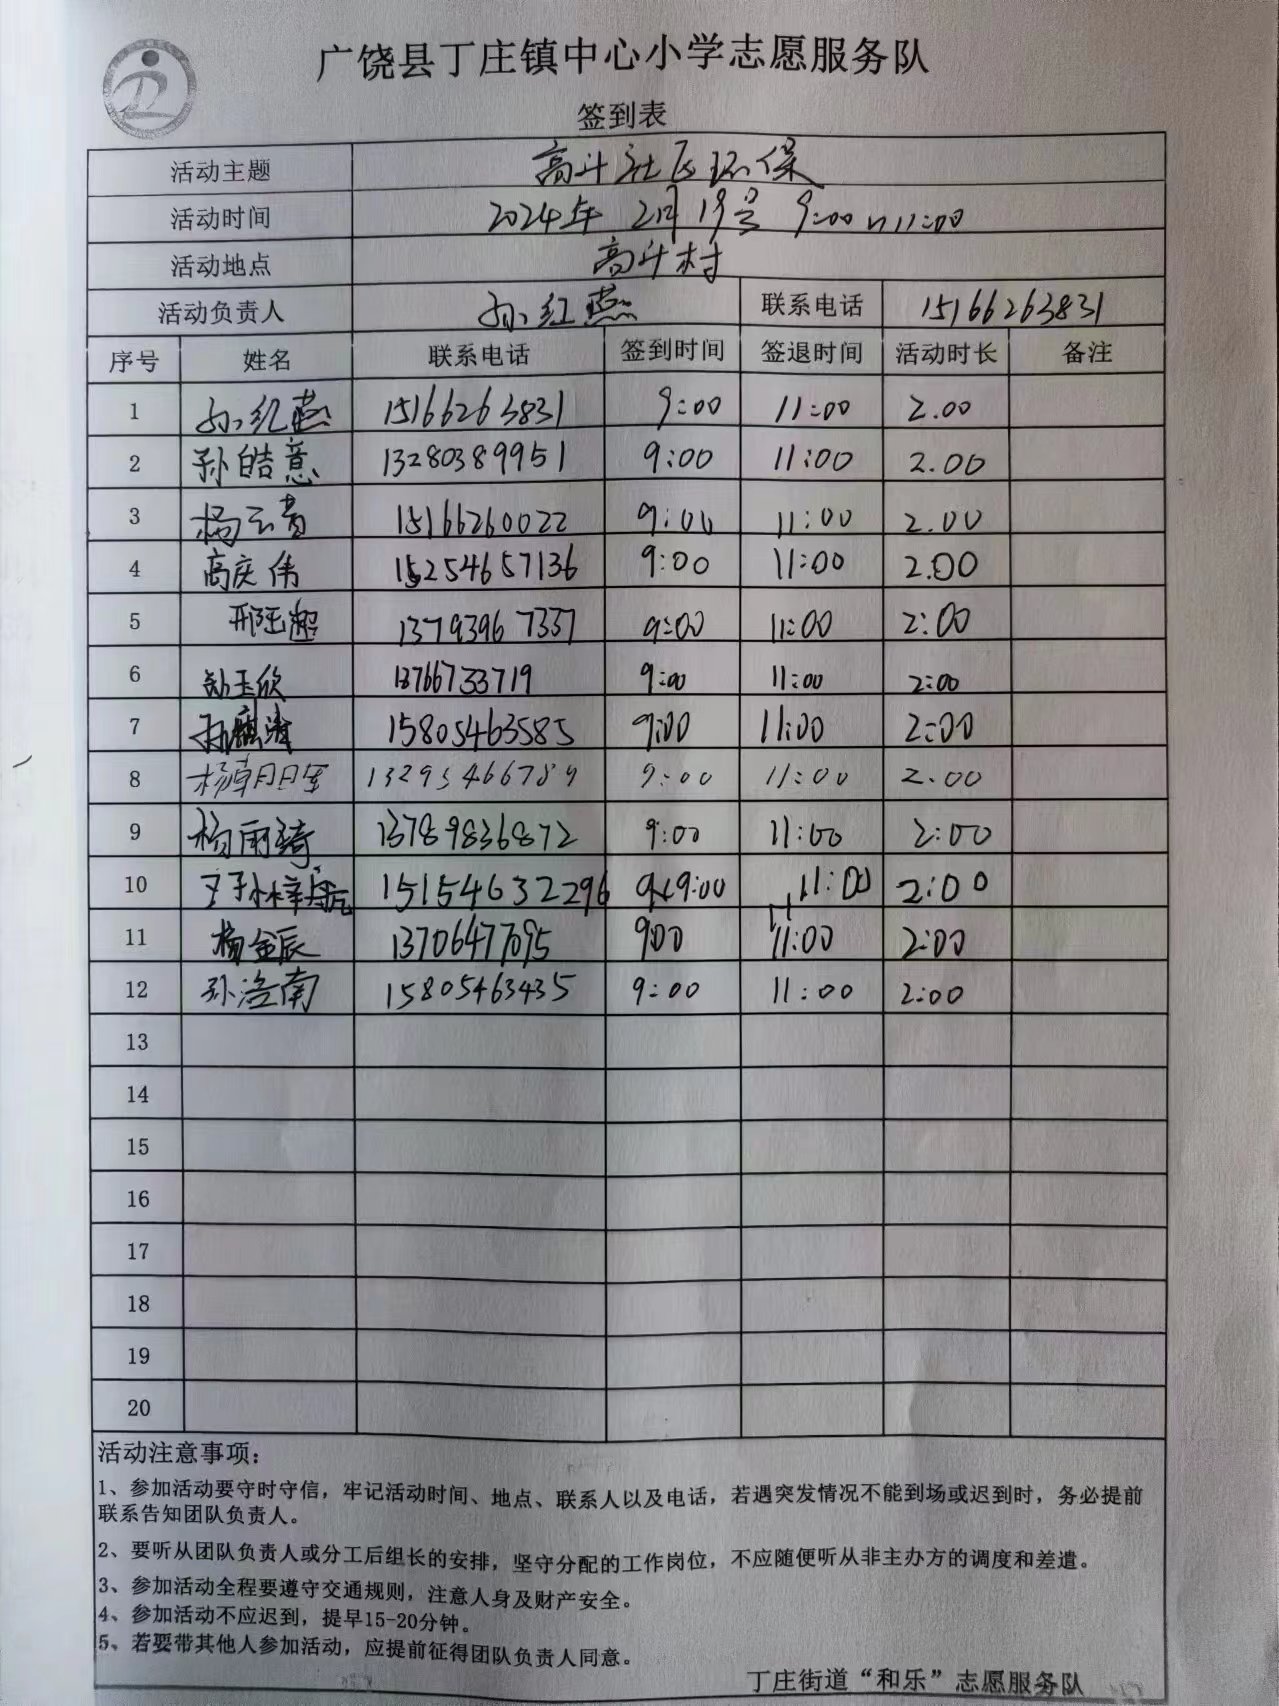 广饶县丁庄镇中心小学志愿服务队
签到表
活动主题 高斗社区环保
活动时间 2024年 2月19号 9:00~11:00
活动地点 高斗村
活动负责人 孙红燕 联系电话 15166263831
序号 姓名 联系电话 签到时间 签退时间 活动时长 备注
1 孙红燕 15166263831 9:00 11:00 2.00
2 孙皓意 13280389951 9:00 11:00 2.00
3 杨云青 15166260022 9:00 11:00 2.00
4 高庆伟 15254657136 9:00 11:00 2.00
5 邢玉超 13793967337 9:00 11:00 2:00
6 玉欣 13766733719 9:00 11:00 2:00
7 孙 15805463585 9:00 11:00 2:00
8 杨朝 13295466789 9:00 11:00 2.00
9 杨雨琦 13789836872 9:00 11:00 2:00
10 梓航 15154632296 9:00 11:00 2:00
11 杨金辰 13706477095 900 11:00 2:00
12 孙洺南 15805463435 9:00 11:00 2:00
13
14
15
16
17
18
19
20
活动注意事项：
1、参加活动要守时守信，牢记活动时间、地点、联系人以及电话，若遇突发情况不能到场或迟到时，务必提前
联系告知团队负责人。
2、要听从团队负责人或分工后组长的安排，坚守分配的工作岗位，不应随便听从非主办方的调度和差遣。
3、参加活动全程要遵守交通规则，注意人身及财产安全。
4、参加活动不应迟到，提早15-20分钟。
5、若要带其他人参加活动，应提前征得团队负责人同意。
丁庄街道“和乐”志愿服务队